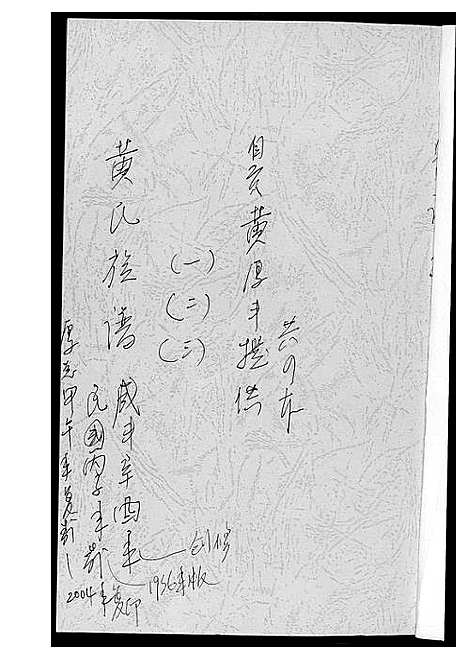 共四本
自贡黄厚丰提供
(一)
(二)
(三)
黄氏族谱
咸丰辛酉年
创修
民國丙子年
1936年版
厚志甲午年复
2004年复印